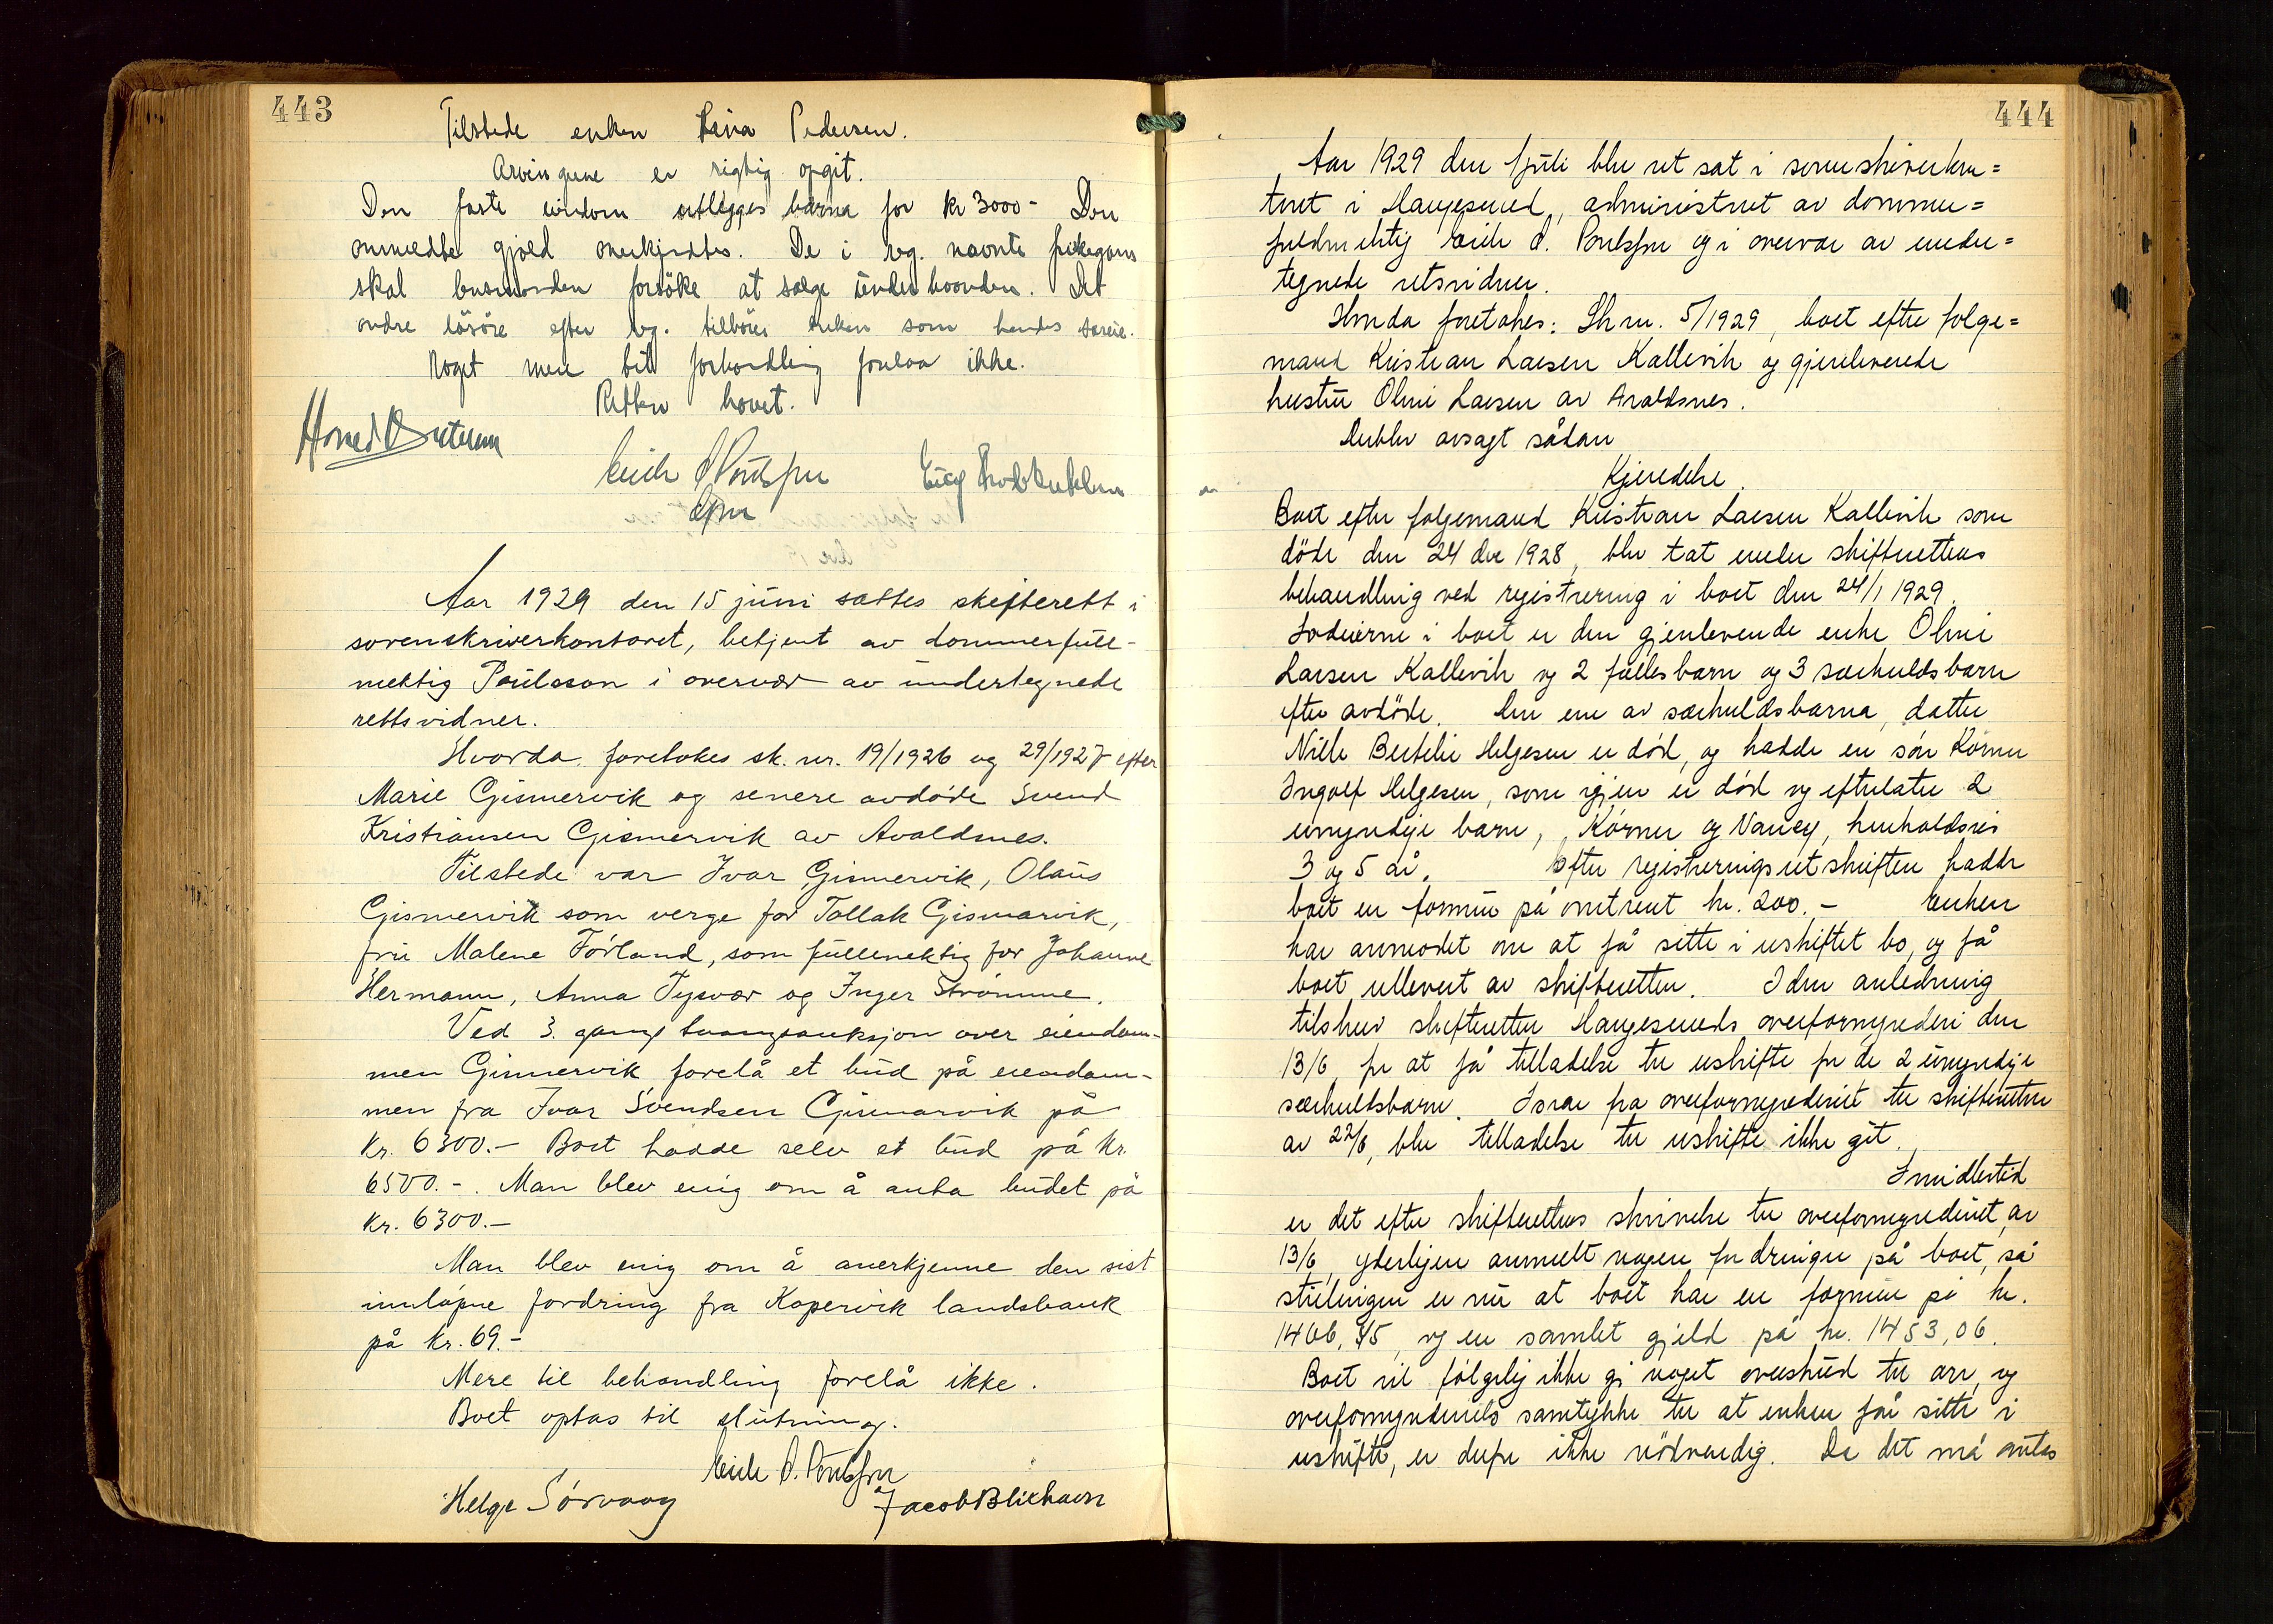 443
Tilstede enken Lina Pedersen.
Arvingene er rigtig opgit.
Den faste eiendom utlægges barna for kr 3000- Den
anmeldte gjæld anerkjendtes. De i reg. nævnte
skal busmanden forsöke at sælge underhaanden. Det
andre lösöre efter reg. tilhörer enken som hendes særeie.
Noget mere til forhandling forelaa ikke.
Retten hævet.
Eirik A Poulsson
Aar 1929 den 15 juni sattes skifterett i
sorenskriverkontoret, betjent av dommerfull-
mektig Poulsson i overvær av undertegnede
rettsvidner.
Hvorda foretokes sk. nr. 19/1926 og 29/1927 efter
Marie Gismervik og senere avdøde Svend
Kristiansen Gismervik av Avaldsnes.
Tilstede var Ivar Gismervik, Olaus
Gismervik som verge for Tollak Gismarvik,
fru Malene Førland, som fullmektig for Johanne
Hermann, Anna Tysvær og Inger Strømme.
Ved 3. gang tvangsauksjon over eiendom-
men Gismervik forelå et bud på eiendom-
men fra Ivar Svendsen Gismarvik på
Kr. 6300.- Boet hadde selv et bud på Kr.
6500.-. Man blev enig om å anta budet på
Kr. 6300.-
Man blev enig om å anerkjenne den sist
innløpne fordring fra Kopervik landsbank
på Kr. 69.-
Mere til behandling forelå ikke.
Boet optas til slutning.
Eirik A. Poulsson
Helge Sørvaag Jacob Blikhavn
444
Aar 1929 den 1 juli blev ret sat i sorenskriverkon=
toret i Haugesund, administrert av dommer=
fuldmektig Eirik A. Poulsson og i overvær av under=
tegnede retsvidner.
Hvorda foretokes: Sk nr. 5/1929, boet efter følge=
mand Kristian Larsen Kallevik og gjenlevende
hustru Oline Larsen av Avaldsnes.
Der blev avsagt sådan
Kjendelse.
Boet efter følgemand Kristian Larsen Kallevik som
döde den 24 des 1928, blev tat under skifterettens
behandling ved registrering i boet den 24/1 1929.
Lodeierne i boet er den gjenlevende enke Oline
Larsen Kallevik og 2 fællesbarn og 3 særkuldsbarn
efter avdöde. Den ene av særkuldsbarna, datter
Nille Bertelie Helgesen er död, og hadde en sön Körner
Ingolf Helgesen, som igjen er död og efterlater 2
umyndige barn, Körner og Nancy, henholdsvis
3 og 5 år. Efter registreringsutskriften hadde
boet en formue på omtrent kr. 200.- Enken
har anmodet om at få sitte i uskiftet bo, og få
boet utlevert av skifteretten. I den anledning
tilskrev skifteretten Haugesunds overformynderi den
13/6 for at få tilladelse til uskifte for de 2 umyndige
særkuldsbarn. I svar fra overformynderiet til skifteretten
av 22/6, blev tilladelse til uskifte ikke git.
Imidlertid
er det efter skifterettens skrivelse til overformynderiet av
13/6, yderligere anmeldt nogen fordringer på boet, så
stillingen er nu at boet har en formue på kr.
1406,45, og en samlet gjæld på kr. 1453,06.
Boet vil følgelig ikke gi noget overskud til arv, og
overformynderiets samtykke til at enken får sitte i
uskifte, er derfor ikke nödvendig. Da det må antas